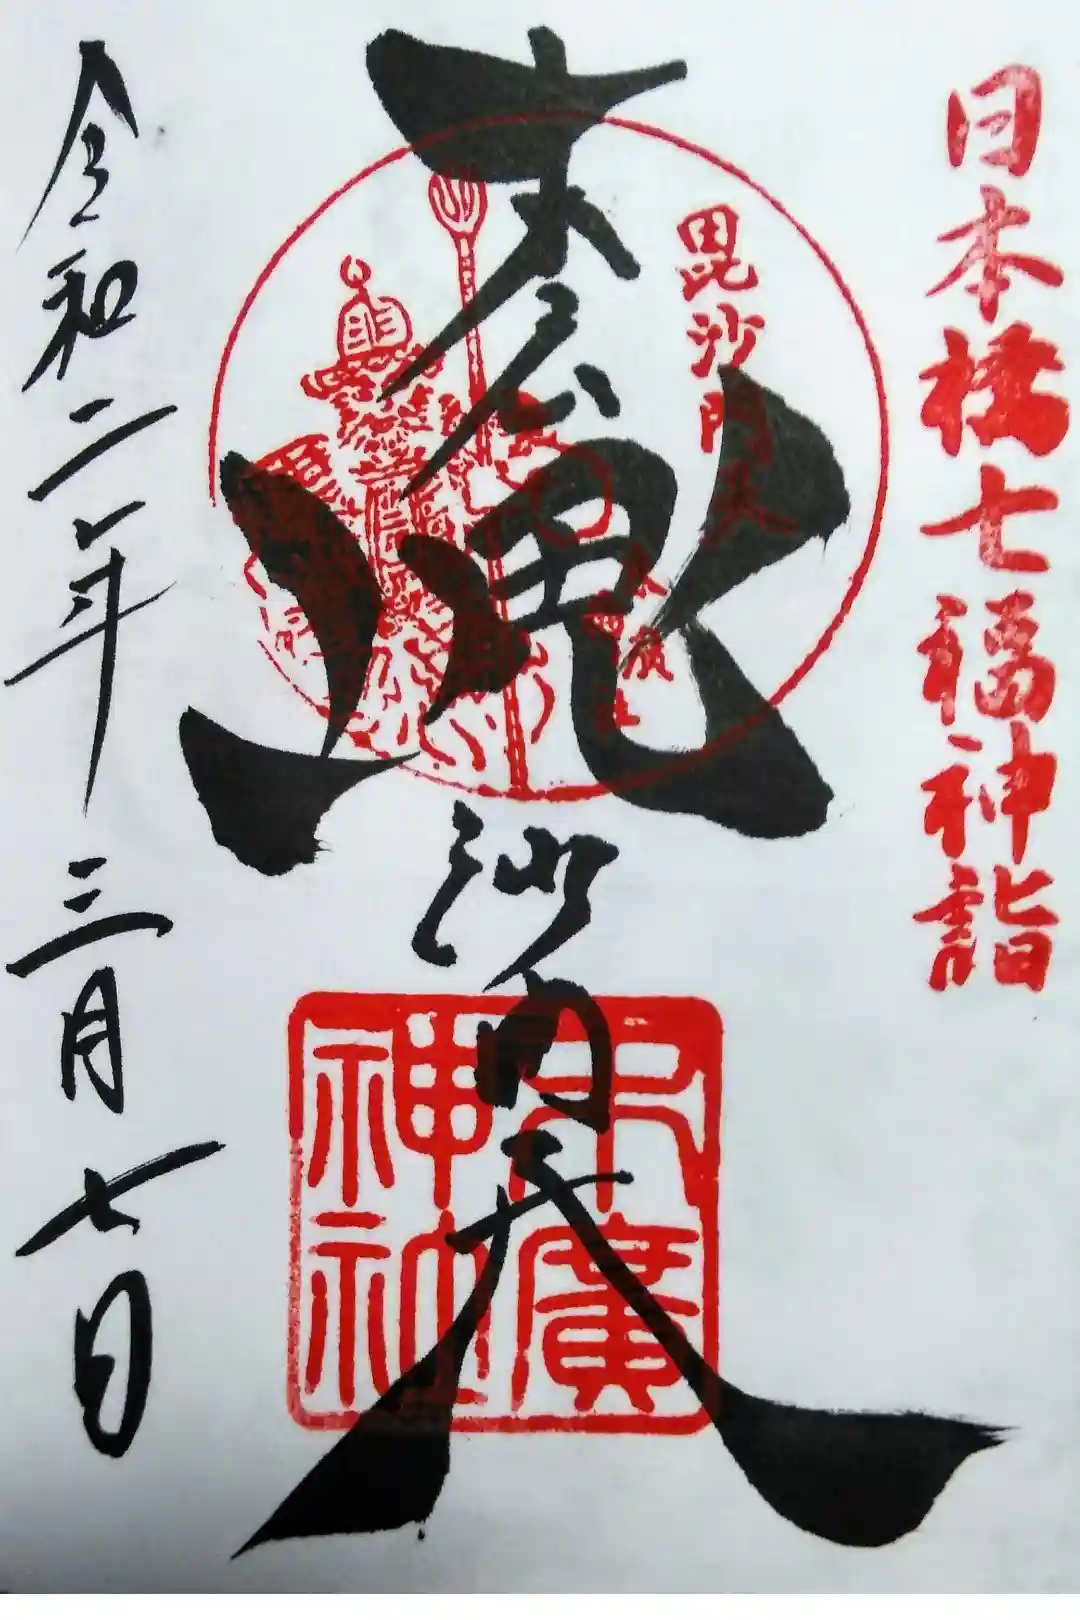 日本橋七福神詣
毘沙門天
末廣
神社
末広
毘沙門天
末廣
神社
令和二年三月七日